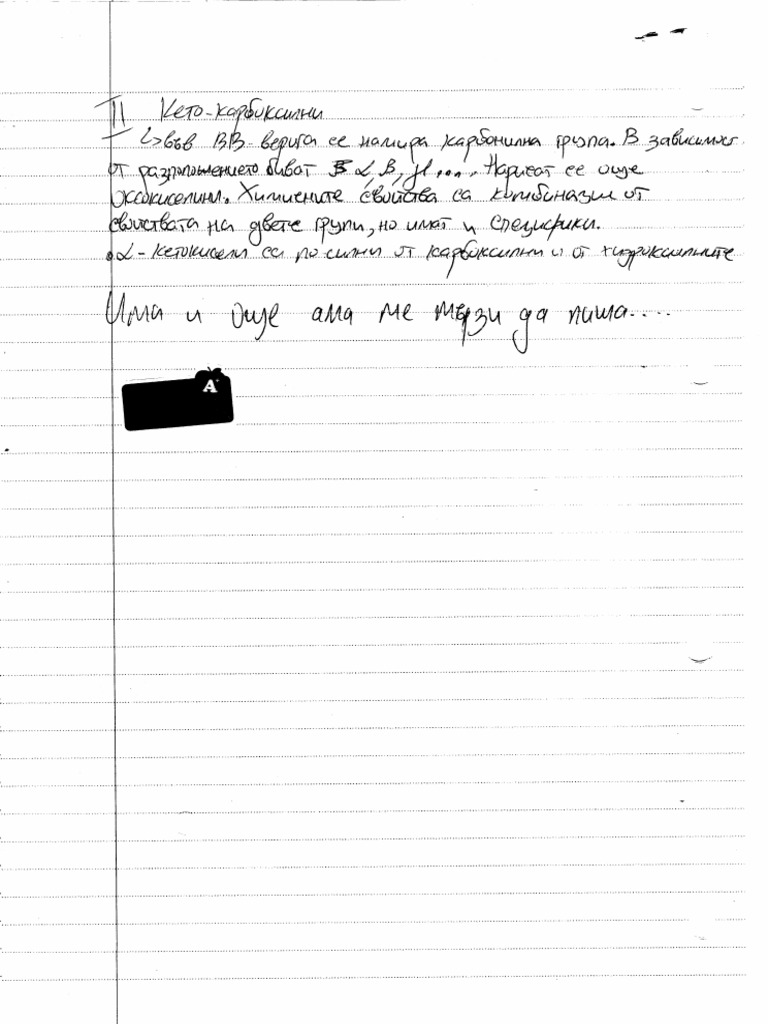 II Кето-карбоксилни
↳ във ВВ верига се намира карбонилна група. В зависимост
от разположението биват α, β, γ.... Наричат се още
оксокиселини. Химичните свойства са комбинации от
свойствата на двете групи, но имат и специфики.
• α-кетокисели са по силни от карбоксилни и от хидроксилните
Има и още ама ме мързи да пиша....
A+